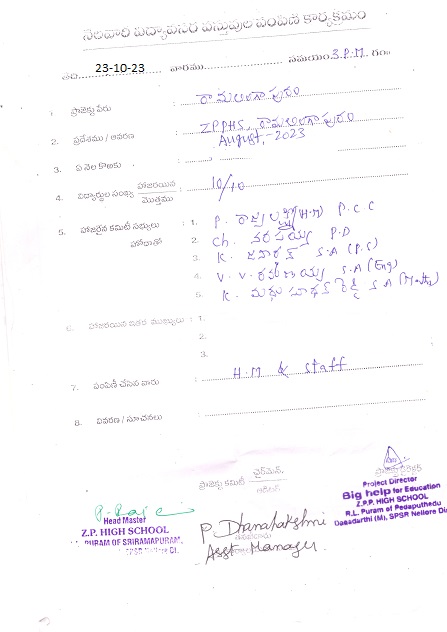 నెలవారి విద్యావసర వస్తువుల పంపిణి కార్యక్రమం
తేది. 23-10-23 వారము సమయం 3.P.M. గం॥
1. ప్రాజెక్టు పేరు : రామలింగాపురం
2. ప్రదేశము / ఆవరణ : ZPPHS, రామలింగాపురం
3. ఏ నెల కొరకు : August, - 2023
4. విద్యార్థుల సంఖ్య హాజరయిన / మొత్తము : 10/10
5. హాజరైన కమిటీ సభ్యులు హోదాతో : 1. P. రాజ్యలక్ష్మి (H.M) P.C.C
2. Ch. నరసయ్య P.D
3. K. S.A (P.S)
4. V.V. రమణయ్య S.A (Eng)
5. K. మధుసూధన్ రెడ్డి S.A (Maths)
6. హాజరయిన ఇతర ముఖ్యులు : 1.
2.
3.
7. పంపిణీ చేసిన వారు : H.M & Staff
8. వివరణ / సూచనలు :
ప్రాజెక్టు కమిటీ ఛైర్మెన్.
Head Master
Z.P. HIGH SCHOOL
PURAM OF SRIRAMAPURAM,
P. Dhanalakshmi
Asst Manager.
ప్రాజెక్టు డైరెక్టర్
Project Director
Big help for Education
Z.P.P. HIGH SCHOOL
R.L. Puram of Pedaputhedu
Dagadarthi (M), SPSR Nellore Di